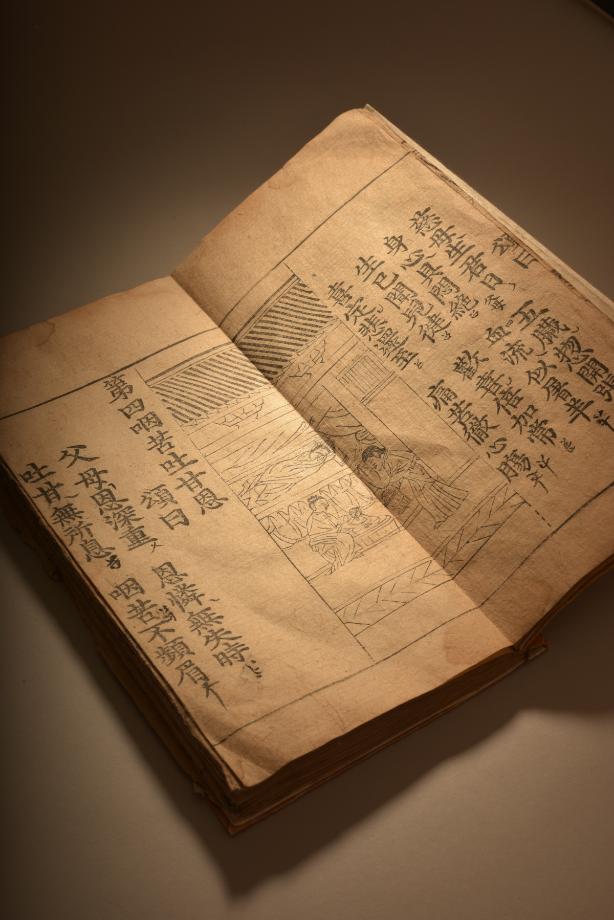 頌曰
慈母生君日 五臟惣開
身心具悶絕 血流似
生已聞兒 歡喜倍加常
喜定悲還至 痛苦徹心膓
第四咽苦吐甘恩 頌曰
父母恩深重 恩憐無失時
吐甘無所息 咽苦不頻眉